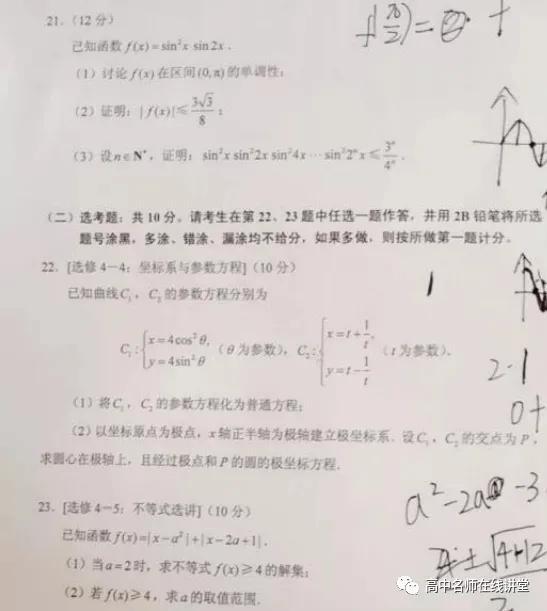 21. (12 分)
已知函数 f(x)=sin²x sin2x.
(1) 讨论 f(x) 在区间(0,π)的单调性;
(2) 证明: |f(x)|≤3√3/8;
(3) 设n∈N*, 证明: sin²x sin²2x sin²4x…sin²2ⁿx≤3ⁿ/4ⁿ.
(二) 选考题: 共 10 分。请考生在第 22、23 题中任选一题作答, 并用 2B 铅笔将所选
题号涂黑, 多涂、错涂、漏涂均不给分, 如果多做, 则按所做第一题计分。
22. [选修 4-4: 坐标系与参数方程] (10 分)
已知曲线C₁, C₂ 的参数方程分别为
C₁: {x=4cos²θ, y=4sin²θ (θ 为参数), C₂: {x=t+1/t, y=t-1/t (t 为参数).
(1) 将C₁, C₂ 的参数方程化为普通方程;
(2) 以坐标原点为极点, x轴正半轴为极轴建立极坐标系. 设C₁, C₂ 的交点为 P,
求圆心在极轴上, 且经过极点和 P 的圆的极坐标方程.
23. [选修 4-5: 不等式选讲] (10 分)
已知函数 f(x)=|x-a²|+|x-2a+1|.
(1) 当a=2时, 求不等式 f(x)≥4 的解集;
(2) 若 f(x)≥4, 求a 的取值范围.
1
2·1
0+
高中名师在线讲堂